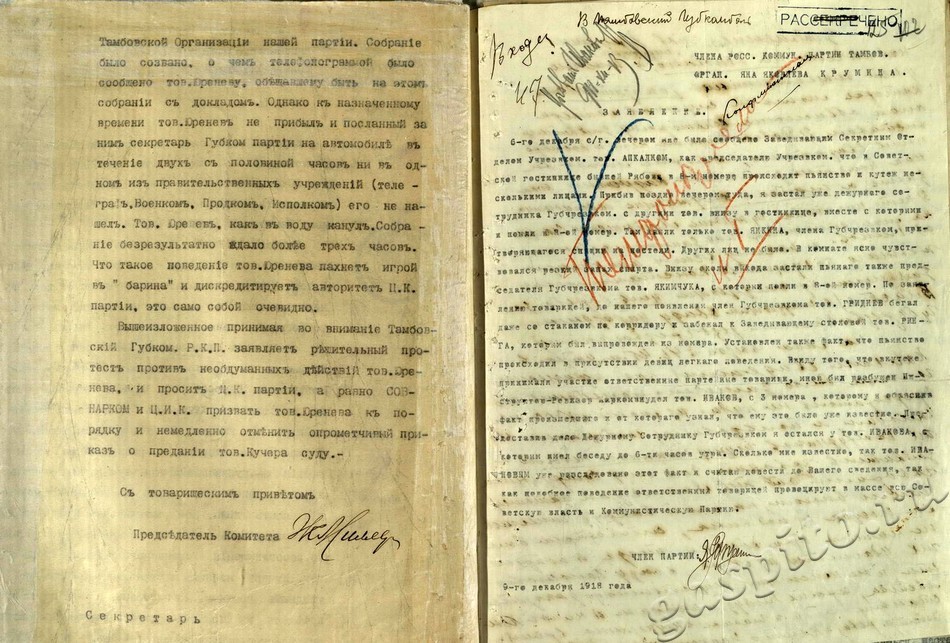 Тамбовской Организаціи нашей партіи. Собраніе
было созвано, о чемъ телефонограммой было
сообщено тов.Дреневу, обѣщавшему быть на этомъ
собраніи съ докладомъ. Однако къ назначенному
времени тов.Дреневъ не прибылъ и посланный за
нимъ секретарь Губком партіи на автомобилѣ въ
теченіе двухъ съ половиной часовъ ни въ од-
номъ изъ правительственныхъ учрежденій (теле-
графъ,Военкомъ, Продкомъ, Исполкомъ) его не на-
шелъ. Тов. Дреневъ, какъ въ воду канулъ.Собра-
ніе безрезультатно ждало болѣе трехъ часовъ.
Что такое поведеніе тов.Дренева пахнетъ игрой
въ " барина" и дискредитируетъ авторитетъ Ц.К.
партіи, это само собой очевидно.
Вышеизложенное принимая во вниманіе Тамбов-
скій Губком. Р.К.П. заявляетъ рѣшительный про-
тестъ противъ необдуманныхъ дѣйствій тов.Дре-
нева, и проситъ Ц.К. партіи, а равно СОВ-
НАРКОМ и Ц.И.К. призвать тов.Дренева къ по-
рядку и немедленно отмѣнить опрометчивый при-
казъ о преданіи тов.Кучера суду.-
Съ товарищескимъ привѣтомъ
Предсѣдатель Комитета
Секретарь
В Тамбовский Губком
РАССЕКРЕЧЕНО
Входящ
ЧЛЕНА РОСС. КОММУН. ПАРТИИ ТАМБОВ.
ОРГАН. ЯНА ЯКОВЛЕВА КРУМИНА.
ЗАЯВЛЕНИЕ.
6-го декабря с/г. вечером мне было сообщено Заведивавшим Секретным От-
делом Учрезвком. тов. АПКАЛНОМ, как председателю Учрезвком. что в Совет-
ской гостиннице бывшей Рибопа в 8-м номере происходит пьянство и кутеж не-
сколькими лицами. Прибив поздно вечером туда, я застал уже дежурного со-
трудника Губчрезвком. с другими тов. внизу в гостиннице, вместе с которыми
и пошли в 8-ой номер. Там были только тов. ЯКИНА, члена Губчрезвком, при-
творяющегося спящим на постели. Других лиц не было. В комнате ясно чувст-
вовался резкий запах спирта. Внизу около входа застали пьянаго также пред-
седателя Губчрезвкома тов. ЯКИМЧУКА, с которым пошли в 8-ой номер. По заяв-
лению товарищей, до моего появления член Губчрезвкома тов. ГРИДНЕВ бегал
даже со стаканом по корридору и забежал к Заведывающему столовой тов. РИН-
ГА, которым был выпровожен из номера. Установлен также факт, что пьянство
происходил в присутствии девиц легкаго поведения. Ввиду того, что в кутеже
принимали участие ответственные партейные товарищи, мною был разбужен Ин-
структор-Ревизор Наркомвнудел тов. ИВАНОВ, с 3 номера, которому я объяснил
факт происшедшего и от котораго узнал, что ему это было уже известно. Пре-
доставив дело Дежурному Сотруднику Губчрезвком я остался у тов. ИВАНОВА, с
которым имел беседу до 6-ти часов утра. Сколько мне известно, так тов. ИВА-
НОВЫМ уже разследовано этот факт и считаю довести до Вашего сведения, так
как подобное поведение ответственных товарищей провоцируют в массе всю Со-
ветскую власть и Коммунистическую Партию.
ЧЛЕН ПАРТИИ:
9-го декабря 1918 года
gaspito.ru